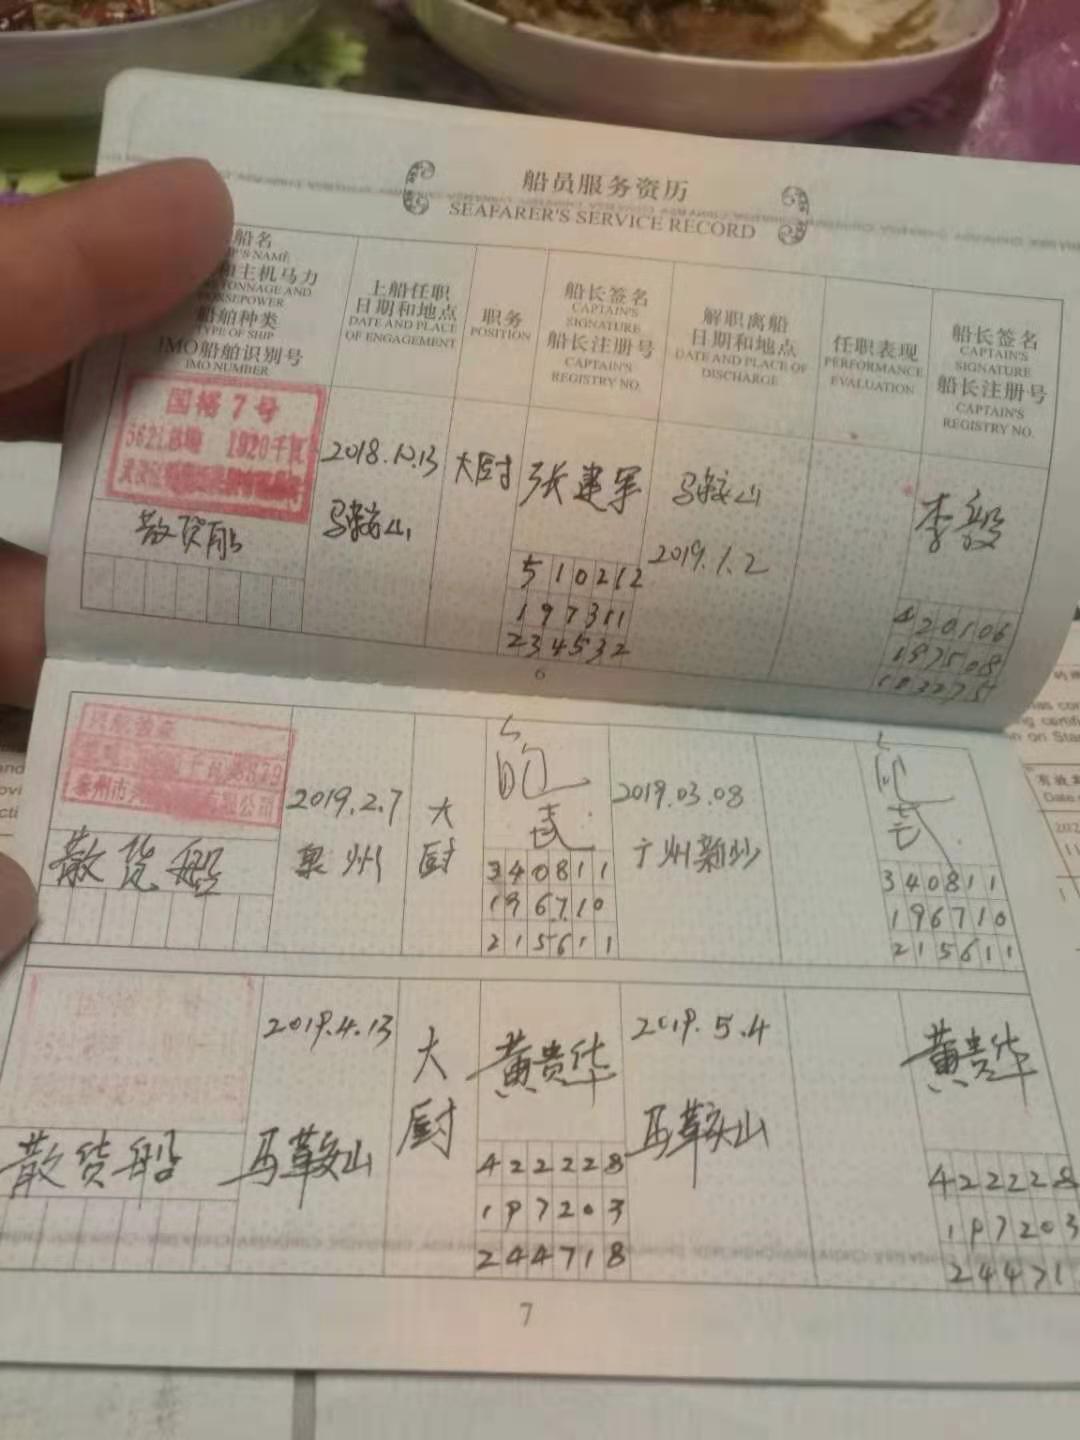 船员服务资历
SEAFARER'S SERVICE RECORD
船名
SHIP'S NAME
和主机马力
TONNAGE AND
HORSEPOWER
船舶种类
TYPE OF SHIP
IMO船舶识别号
IMO NUMBER
上船任职
日期和地点
DATE AND PLACE
OF ENGAGEMENT
职务
POSITION
船长签名
CAPTAIN'S
SIGNATURE
船长注册号
CAPTAIN'S
REGISTRY NO.
解职离船
日期和地点
DATE AND PLACE OF
DISCHARGE
任职表现
PERFORMANCE
EVALUATION
船长签名
CAPTAIN'S
SIGNATURE
船长注册号
CAPTAIN'S
REGISTRY NO.
国裕7号
1920千瓦
散货船
2018.10.13
马鞍山
大厨
张建军
510212
197311
234532
马鞍山
2019.1.2
李毅
420106
197508
6
泰州市
有限公司
散货船
2019.2.7
泉州
大
厨
340811
196710
215611
2019.03.08
广州新沙
340811
196710
215611
散货船
2019.4.13
马鞍山
大
厨
黄贵华
422228
197203
244718
2019.5.4
马鞍山
黄贵华
422228
197203
24471
7